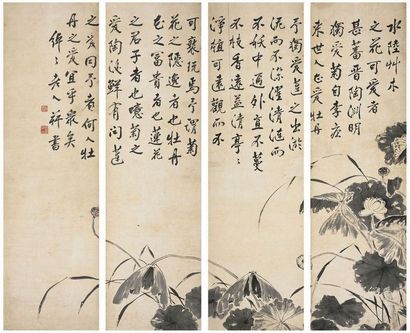 水陸艸木
之花可愛者
甚蕃晉陶淵明
獨愛菊自李唐
來世人愛牡丹
予獨愛蓮之出淤
泥而不染濯清漣而
不妖中通外直不蔓
不枝香遠益清亭々
淨植可遠觀而不
可褻玩焉予謂菊
花之隱逸者也牡丹
花之富貴者也蓮花
之君子者也噫菊之
愛陶後鮮有聞蓮
之愛同予者何人牡
丹之愛宜乎衆矣
老人軒書